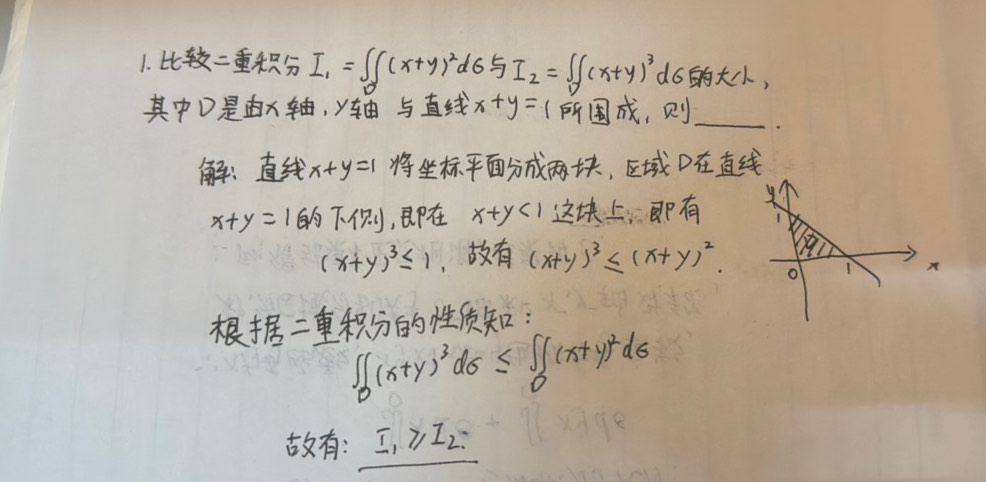 1. 比较二重积分 I₁ = ∬_D (x+y)²dσ 与 I₂ = ∬_D (x+y)³dσ 的大小,
其中 D 是由 x 轴, y 轴 与直线 x+y=1 所围成, 则______.
解: 直线 x+y=1 将坐标平面分成两块, 区域 D 在直线
x+y=1 的下侧, 即在 x+y<1 这块上, 即有
(x+y)³≤1, 故有 (x+y)³≤(x+y)².
y
1
D
0
1
x
根据二重积分的性质知:
∬_D (x+y)³dσ ≤ ∬_D (x+y)²dσ
故有: I₁ ≥ I₂.